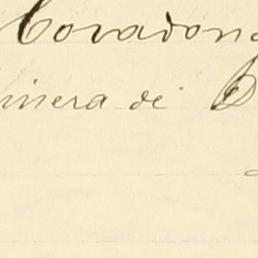 Covadon
inera de B